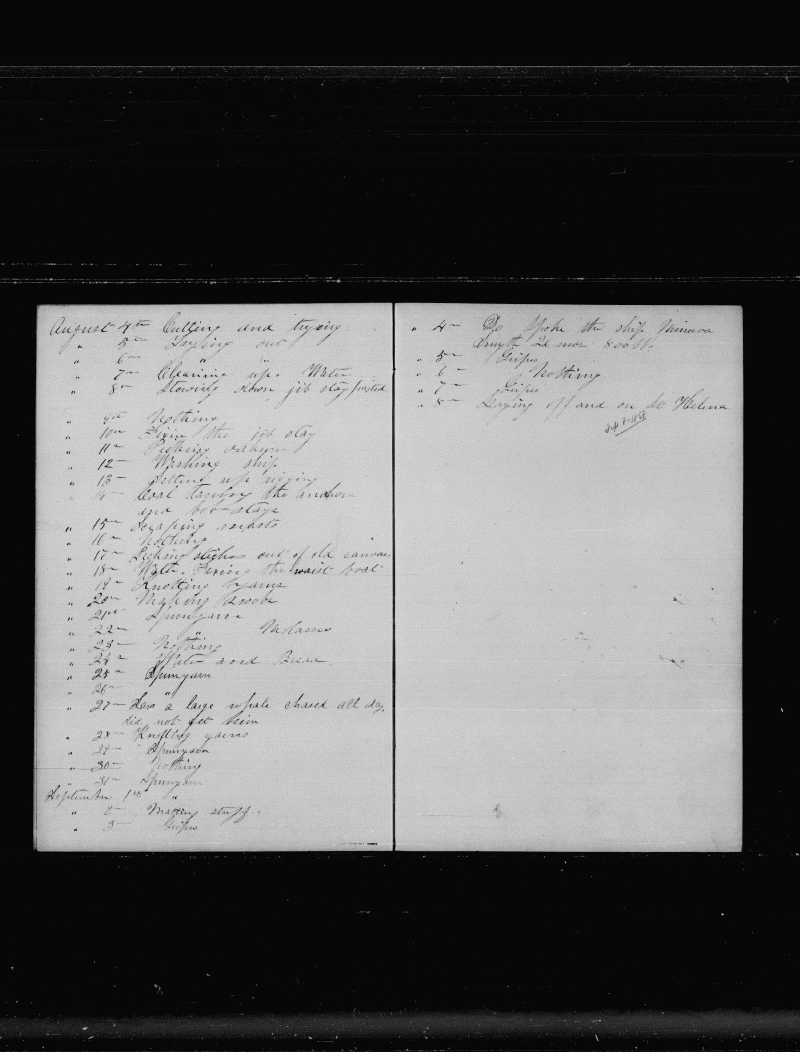 August 4th Cutting and trying
" 5th out
" 6th " "
" 7th Clearing up. Water
" 8th Stowing down jib stay parted
" 9th Nothing
" 10th Fixing the jib stay
" 11th Picking oakum
" 12th Washing ship
" 13th Setting up rigging
" 14th Coal Tarring the anchors
and bob-stays
" 15th Scraping masts
" 16th Nothing
" 17th Picking stiches out of old canvas
" 18th Water. Fixing the waist boat
" 19th Knotting yarns
" 20th Making
" 21st Spunyarn
" 22nd " Molasses
" 23rd Nothing
" 24th Water and
" 25th Spunyarn
" 26th "
" 27th Saw a large whale chased all day
did not get him
" 28th Knotting yarns
" 29th Spunyarn
" 30th Nothing
" 31st Spunyarn
September 1st "
" 2nd Making stuff.
" 3rd Gripes
" 4th Do Spoke the ship Minerva
Smyth 2d mos 800 bbls
" 5th Gripes
" 6th Nothing
" 7th Gripes
" 8th Laying off and on St Helena